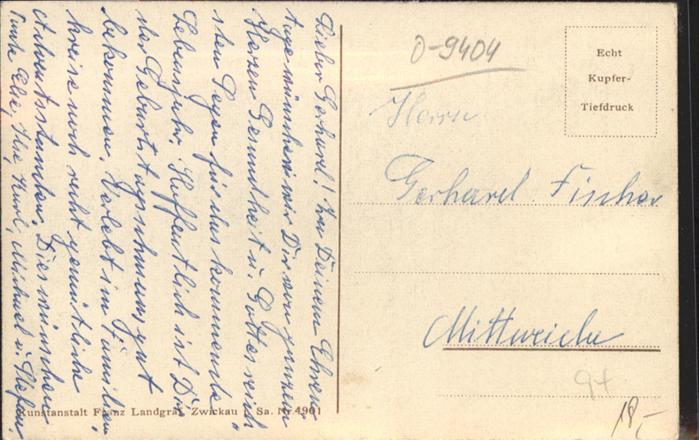 Lieber Gerhard! Zu Deinem Ehren-
tage wünschen wir Dir von ganzem
Herzen Gesundheit u. Gottes reich-
sten Segen für das kommende
Lebensjahr. Hoffentlich ist Dir
der Geburtstagsschmaus gut
bekommen. Verlebt im Familien-
kreise noch recht gemütliche
Adventsstunden. Dies wünschen
Tante Else, Ilse, Karl, Michael u. Stefan
O-9404
Herrn
Gerhard Fischer
Mittweida
94
18,-
Echt
Kupfer-
Tiefdruck
Kunstanstalt Franz Landgraf, Zwickau i. Sa. Nr. 4901